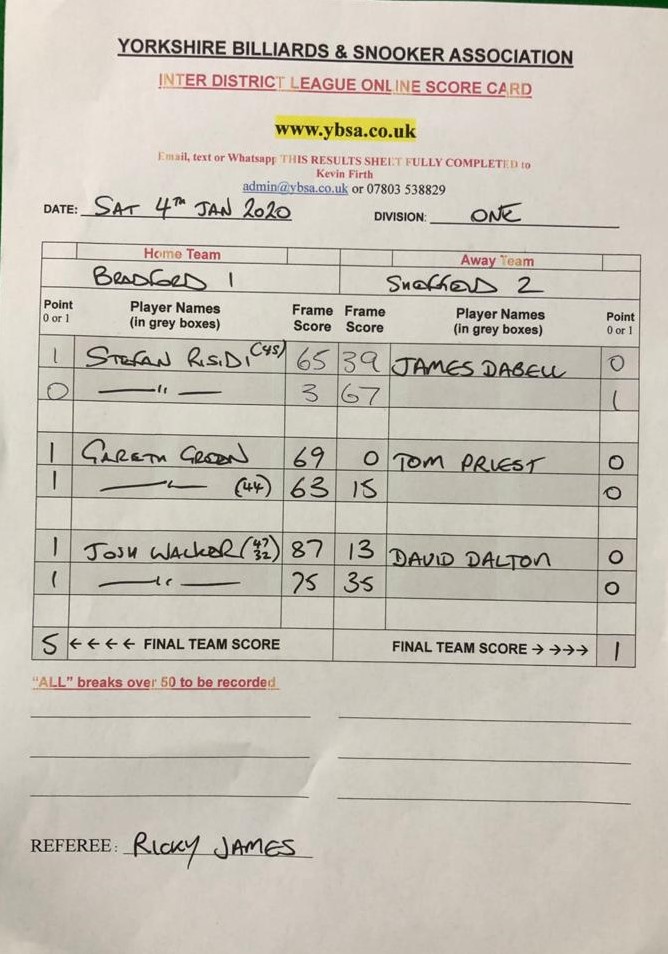 YORKSHIRE BILLIARDS & SNOOKER ASSOCIATION
INTER DISTRICT LEAGUE ONLINE SCORE CARD
www.ybsa.co.uk
Email, text or Whatsapp THIS RESULTS SHEET FULLY COMPLETED to
Kevin Firth
admin@ybsa.co.uk or 07803 538829
DATE: SAT 4TH JAN 2020 DIVISION: ONE
Home Team Away Team
BRADFORD 1 SHEFFIELD 2
Point 0 or 1 Player Names (in grey boxes) Frame Score Frame Score Player Names (in grey boxes) Point 0 or 1
1 STEFAN RISIDI (45) 65 39 JAMES DABELL 0
0 —"— 3 67 1
1 GARETH GREEN 69 0 TOM PRIEST 0
1 —"— (44) 63 15 0
1 JOSH WALKER (47 32) 87 13 DAVID DALTON 0
1 —"— 75 35 0
5 ←←←← FINAL TEAM SCORE FINAL TEAM SCORE →→→→ 1
"ALL" breaks over 50 to be recorded
REFEREE: RICKY JAMES